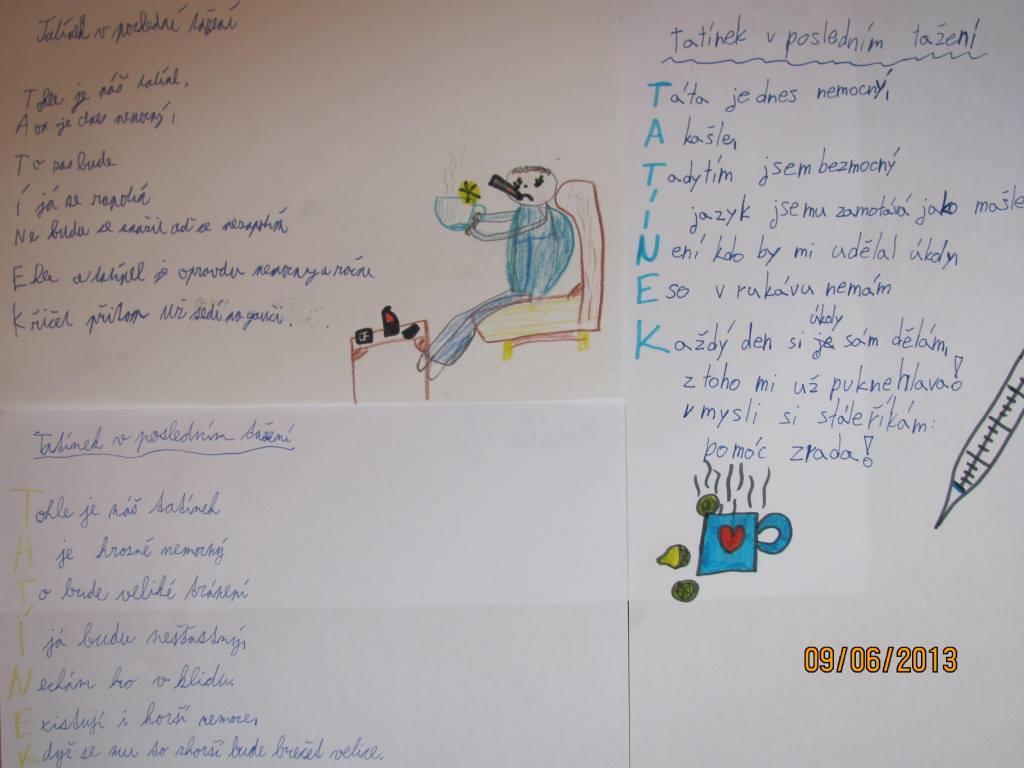 Tatínek v poslední tažení
Tohle je náš
A on je dnes nemocný,
To nás bude
Í já se
Ne budu se snažil
E je opravdu nemocný a
Křičel přitom už sedí na gauči.
Tatínek v posledním tažení
Táta je dnes nemocný,
A kašle,
Tadytím jsem bezmocný
Í jazyk jsemu zamotává jako mašle
Není kdo by mi udělal úkoly,
Eso v rukávu nemám
úkoly
Každý den si je sám dělám,
z toho mi už pukne hlava!
v mysli si stále říkám:
pomóc zrada!
Tatínek v posledním tažení
Tohle je náš tatínek
A je hrozně nemocný
To bude veliké trápení
Í já budu nešťastný,
Nechám ho v klidu.
Existují i horší nemoce,
Když se mu to zhorší bude brečet velice.
09/06/2013